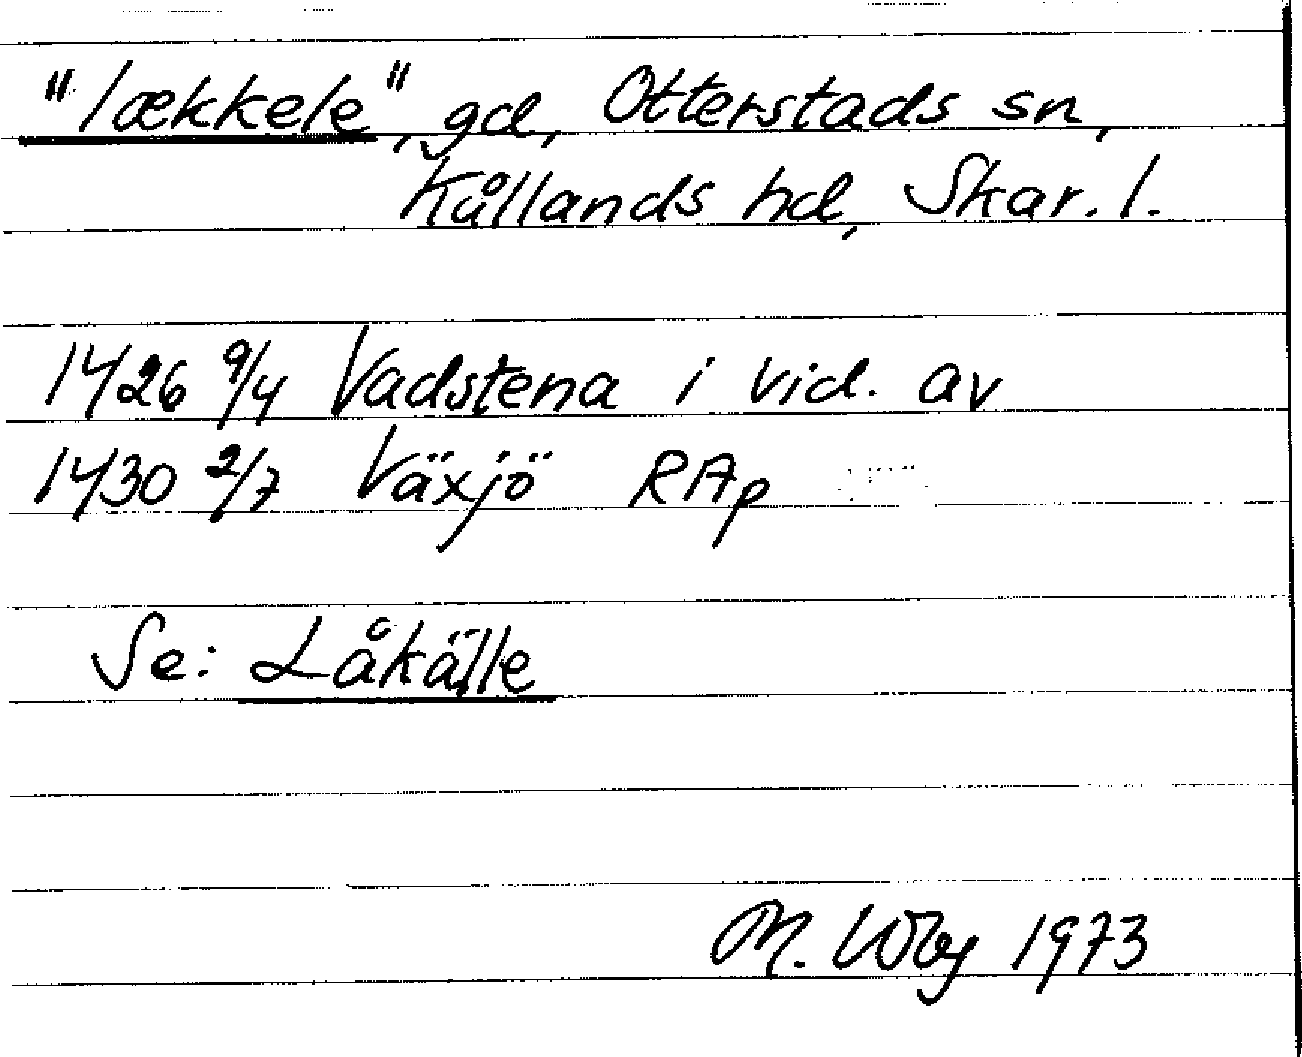 "lækkele", gd, Otterstads sn,
Kållands hd, Skar. l.
1426 9/4 Vadstena i vid. av
1430 2/7 Växjö RAp
Se: Låkälle
M. 1973